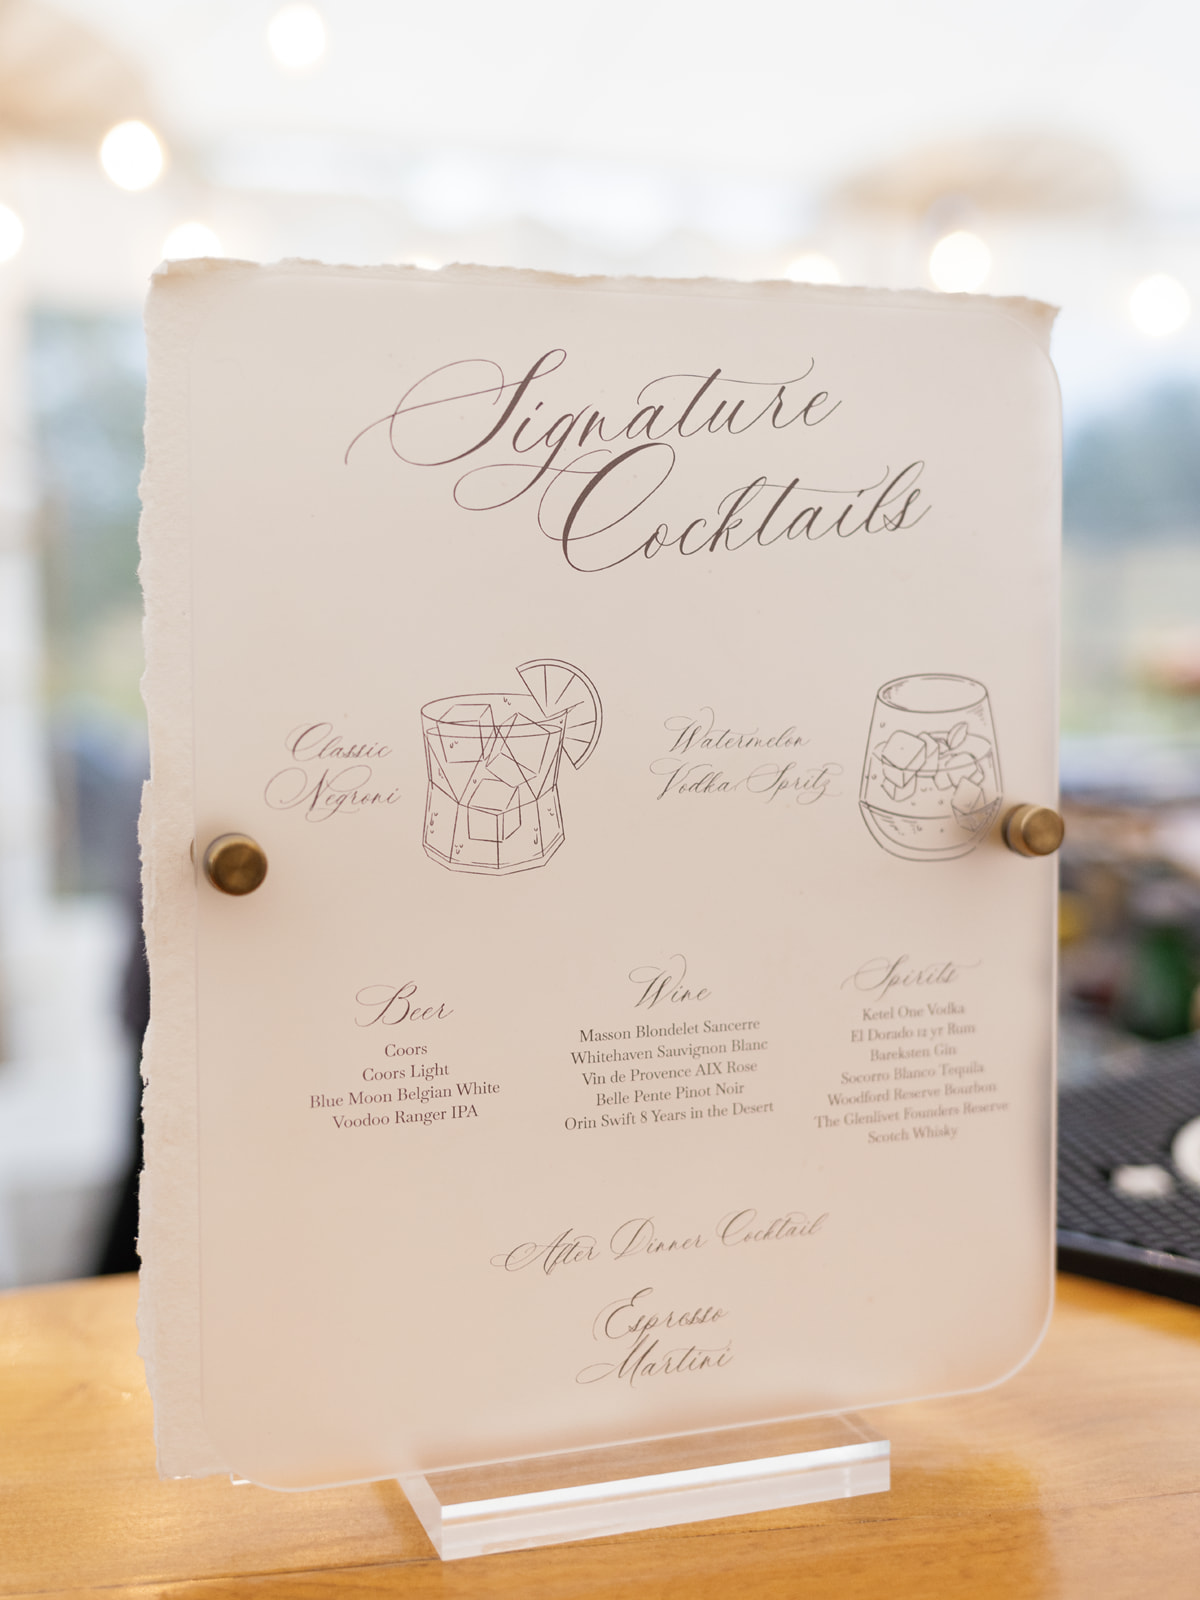 Signature
Cocktails
Classic
Negroni
Watermelon
Vodka Spritz
Beer
Coors
Coors Light
Blue Moon Belgian White
Voodoo Ranger IPA
Wine
Masson Blondelet Sancerre
Whitehaven Sauvignon Blanc
Vin de Provence AIX Rose
Belle Pente Pinot Noir
Orin Swift 8 Years in the Desert
Spirits
Ketel One Vodka
El Dorado 12 yr Rum
Bareksten Gin
Socorro Blanco Tequila
Woodford Reserve Bourbon
The Glenlivet Founders Reserve
Scotch Whisky
After Dinner Cocktail
Espresso
Martini